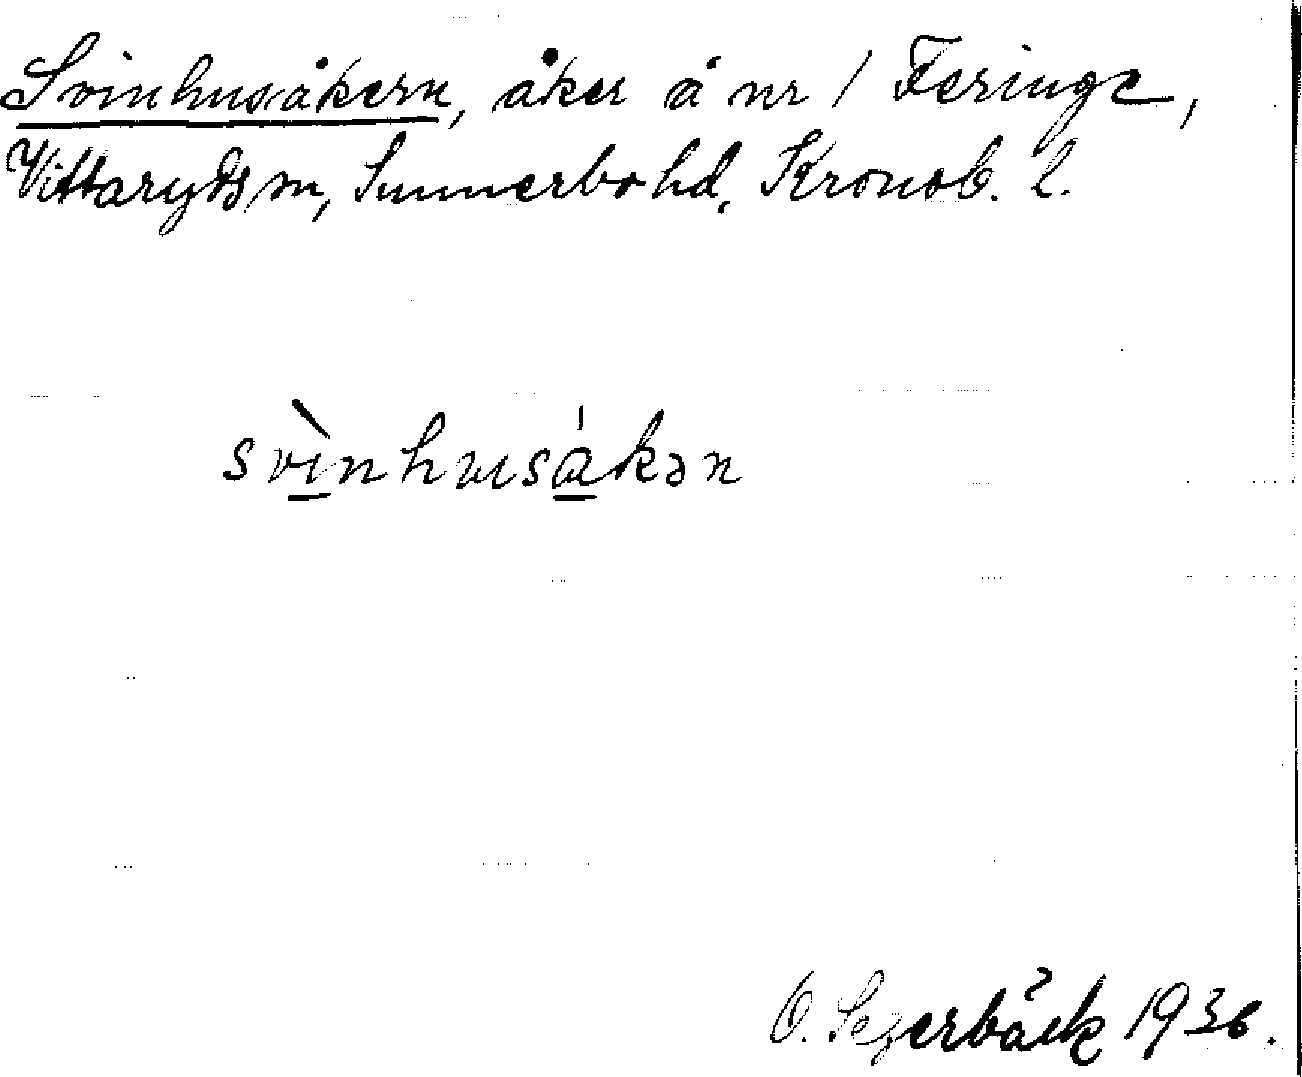 Svinhusåkern, åker å nr 1 Feringe,
Vittaryds sn, Sunnerbo hd, Kronob. l.
svìnhusákən
O. Segerbäck 1936.